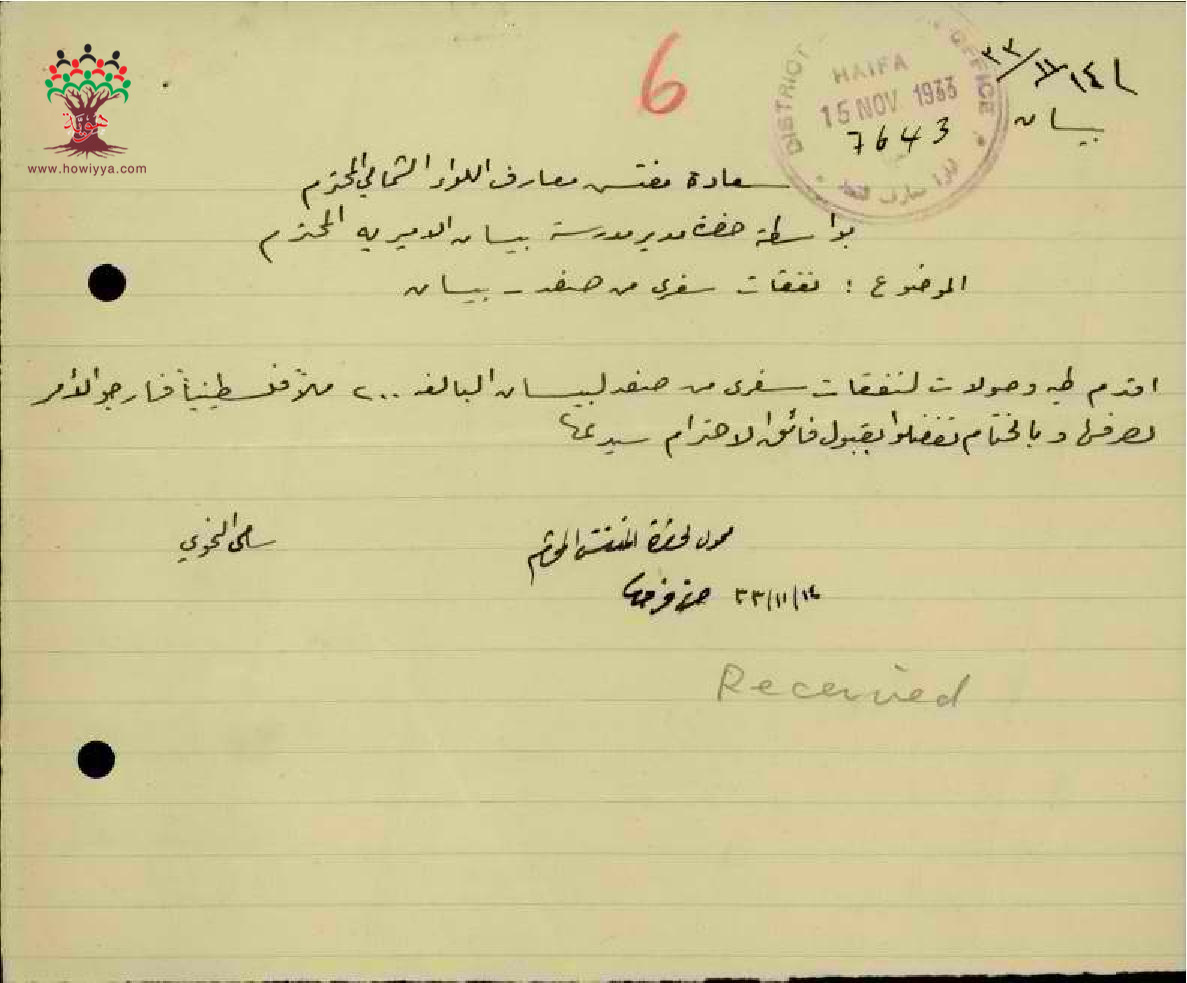 هوية
www.howiyya.com
6
DISTRICT OFFICE
HAIFA
15 NOV 1933
7643
١٤/١١/٣٣
بيسان
سعادة مفتش معارف اللواء الشمالي المحترم
بواسطة حضرة مدير مدرسة بيسان الاميرية المحترم
الموضوع : نفقات سفري من صفد - بيسان
اقدم طيه وصولات لنفقات سفري من صفد لبيسان البالغه ٢٠٠٠ ملاً فلسطينياً فارجو الأمر
لصرفها وبالختام تفضلوا بقبول فائق الاحترام سيدي
محول لحضرة المفتش المحترم
سامي النحوي
١٤/١١/٣٣
Received